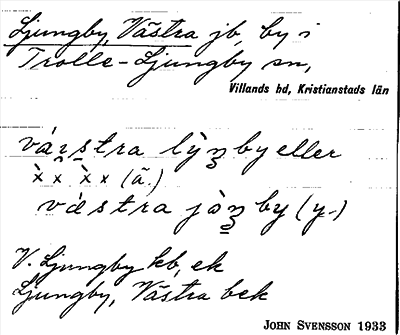 Ljungby, Västra jb, by i
Trolle-Ljungby sn,
Villands hd, Kristianstads län
västra lỳn̥by eller
x̀ x x̀ x (ä.)
västra jòn̥by (y.)
V. Ljungby kb, ek
Ljungby, Västra bek
JOHN SVENSSON 1933